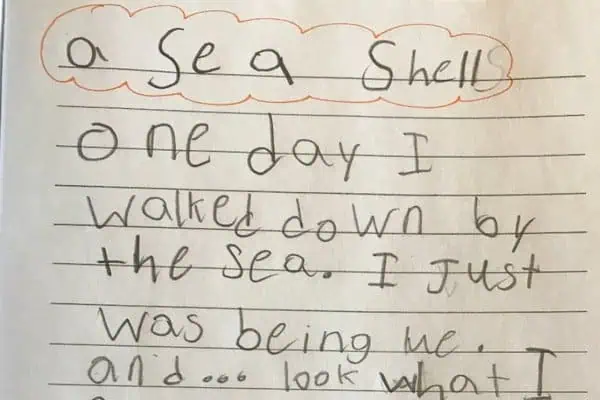 a Sea Shell
one day I
walked down by
the sea. I Just
was being me.
and... look what I